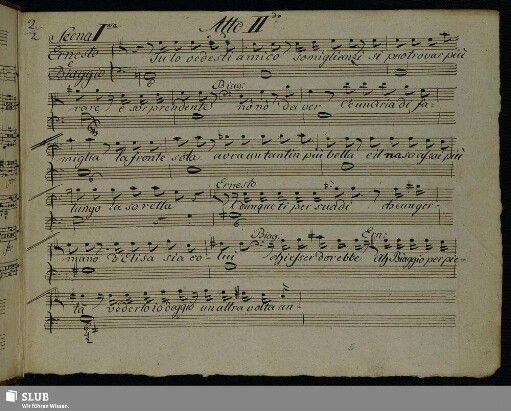 2/2
Scena I.ma Atto II.do
Ernesto Tu lo vedesti amico somiglianza si puo trovar più
e
Biaggio
Biag:
rara! è sorprendente no nò da ver C'e un'aria di fa-
miglia la fronte sola avra un tantin più bella e il naso assai più
Ernesto
lungo la sorella Dunque ti persuadi che un ger-
Biag: Ern:
mano d'Elisa sia co- lui esser dovrebbe Ah Biaggio per pie-
ta vederlo io deggio un altra volta an-
SLUB
Wir führen Wissen.